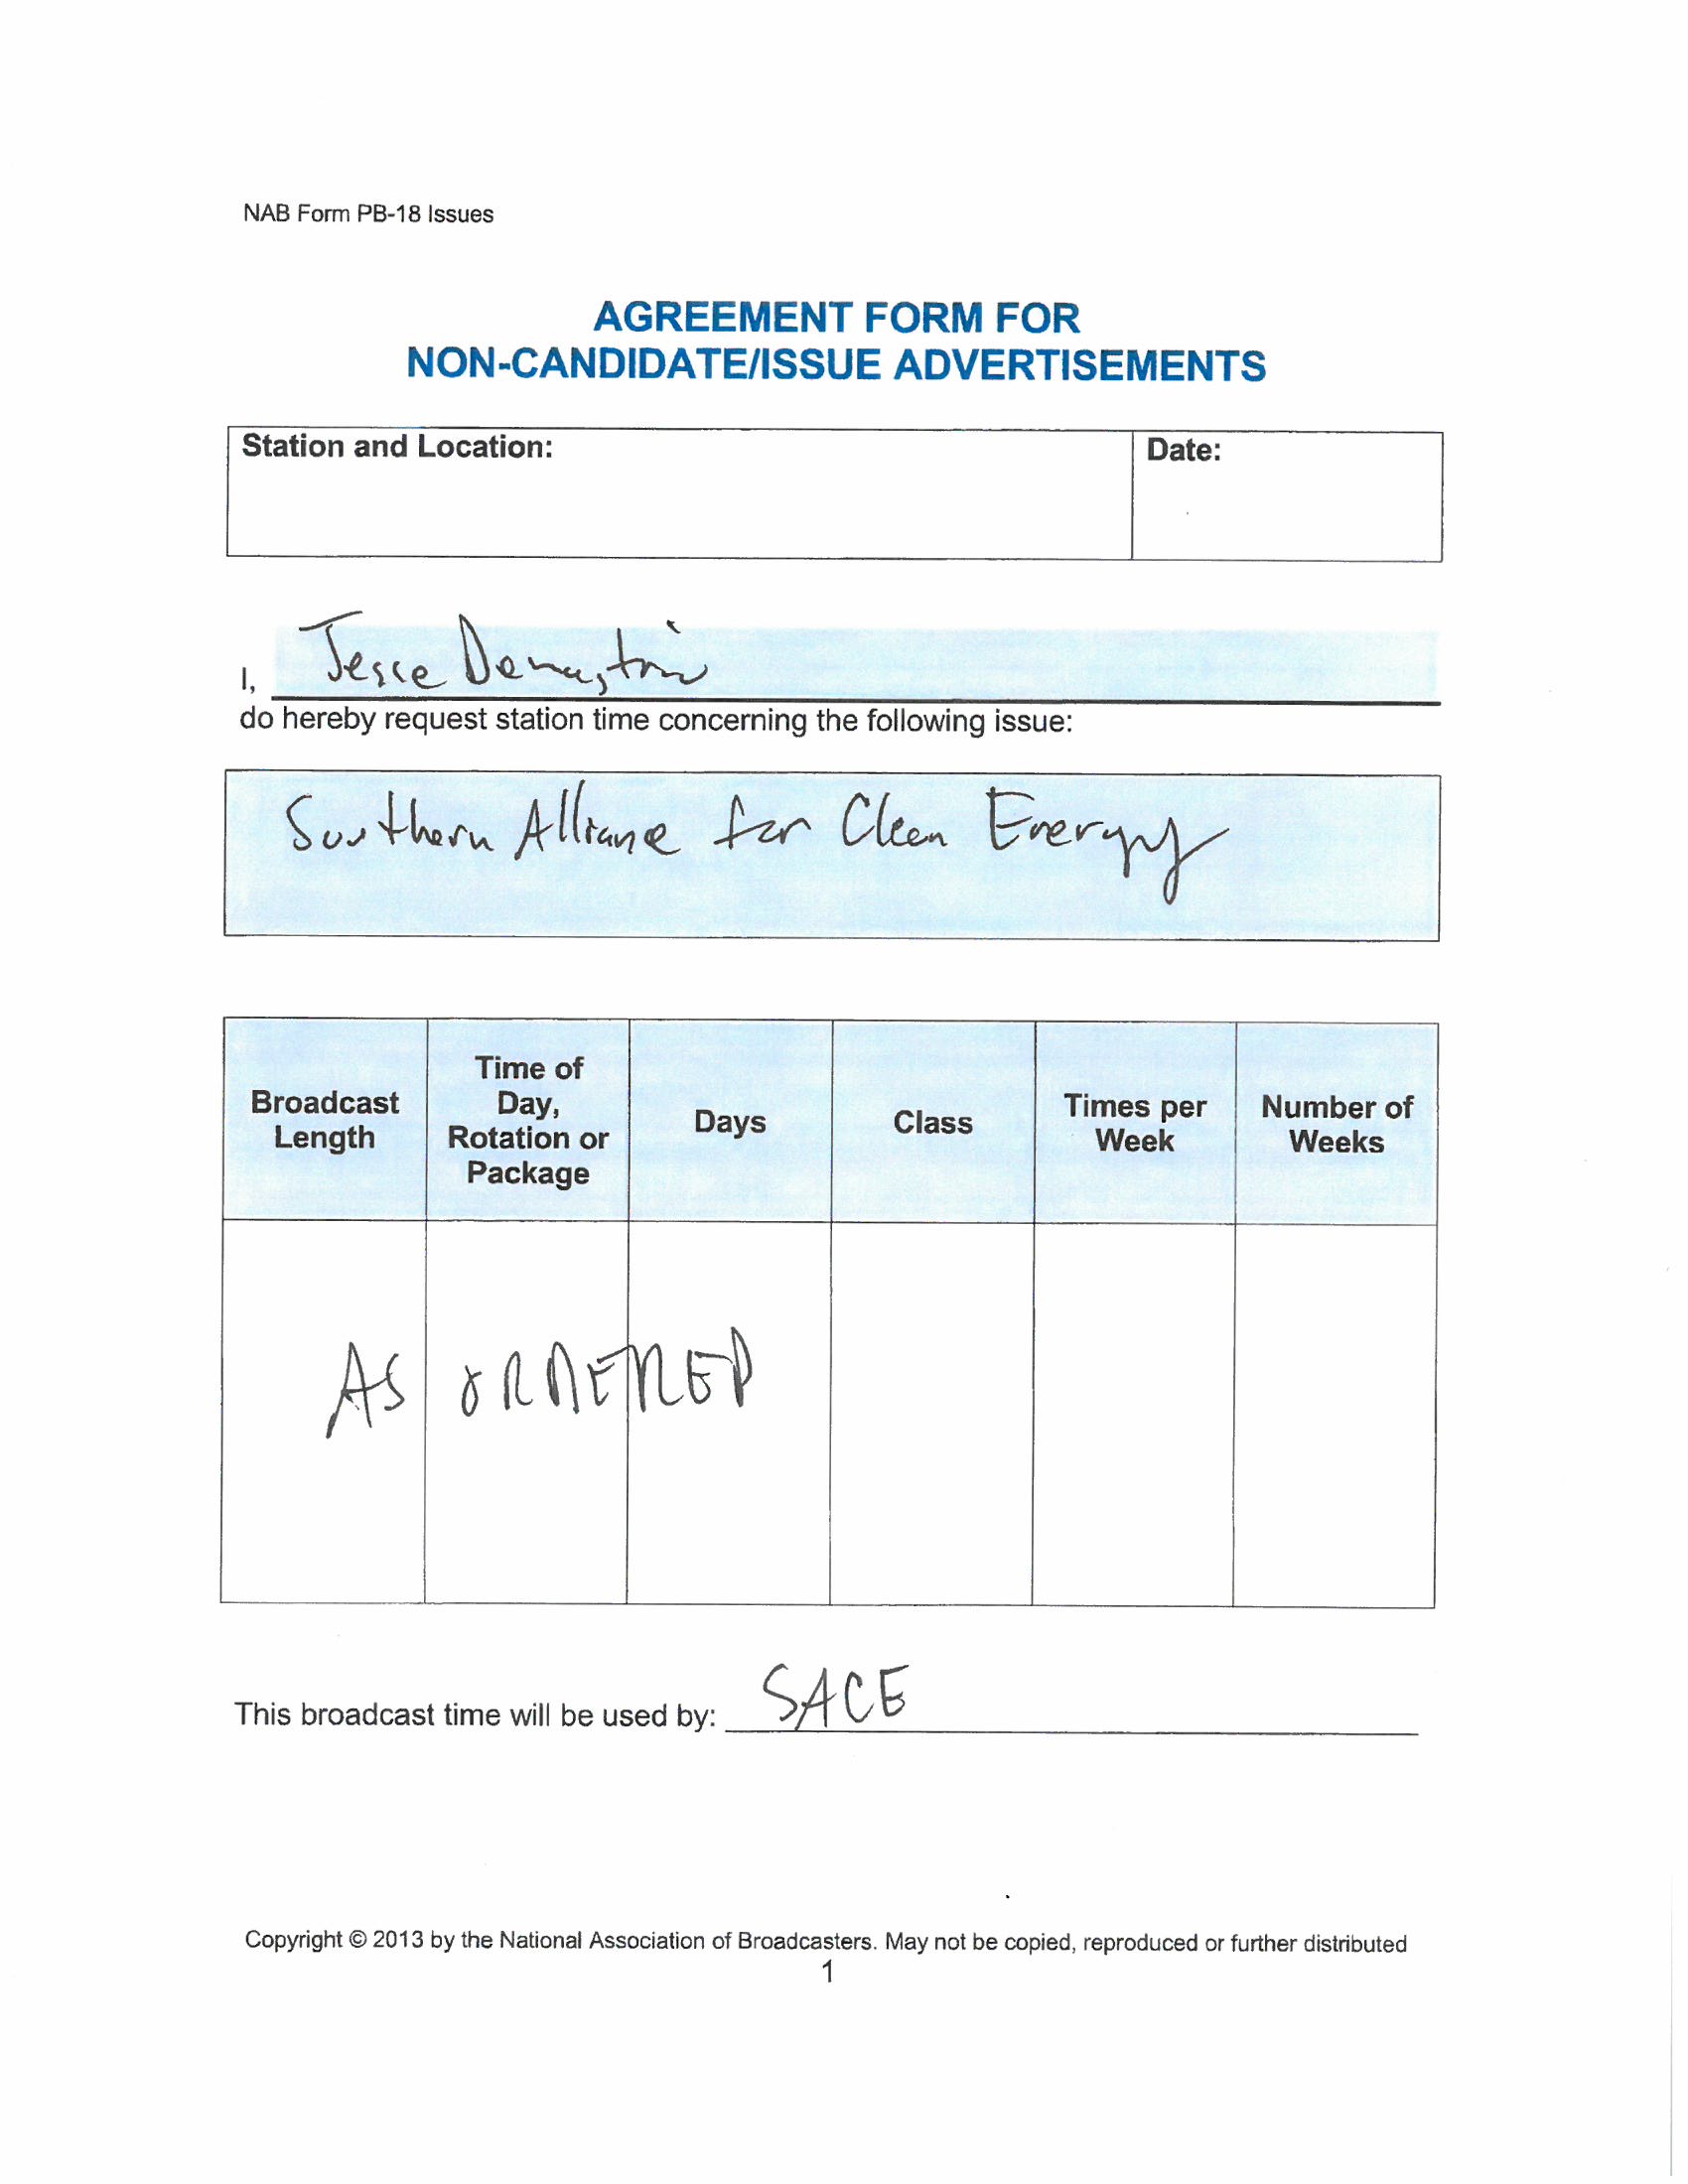 NAB Form PB-18 Issues
AGREEMENT FORM FOR
NON-CANDIDATE/ISSUE ADVERTISEMENTS
Station and Location:
Date:
I, Jesse
do hereby request station time concerning the following issue:
Southern Alliance for Clean Energy
Broadcast
Length
Time of
Day,
Rotation or
Package
Days
Class
Times per
Week
Number of
Weeks
AS ORDERED
This broadcast time will be used by: SACE
Copyright © 2013 by the National Association of Broadcasters. May not be copied, reproduced or further distributed
1